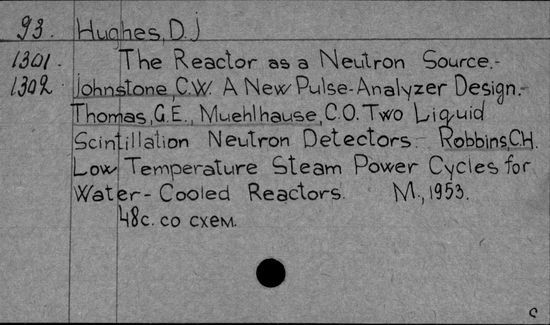 93. Hughes, D. J
1301. The Reactor as a Neutron Source.-
1302. Johnstone, C.W. A New Pulse-Analyzer Design.-
Thomas, G.E., Muehlhause, C.O. Two Liquid
Scintillation Neutron Detectors.- Robbins, C.H.
Low Temperature Steam Power Cycles for
Water-Cooled Reactors. M., 1953.
48с. со схем.
C